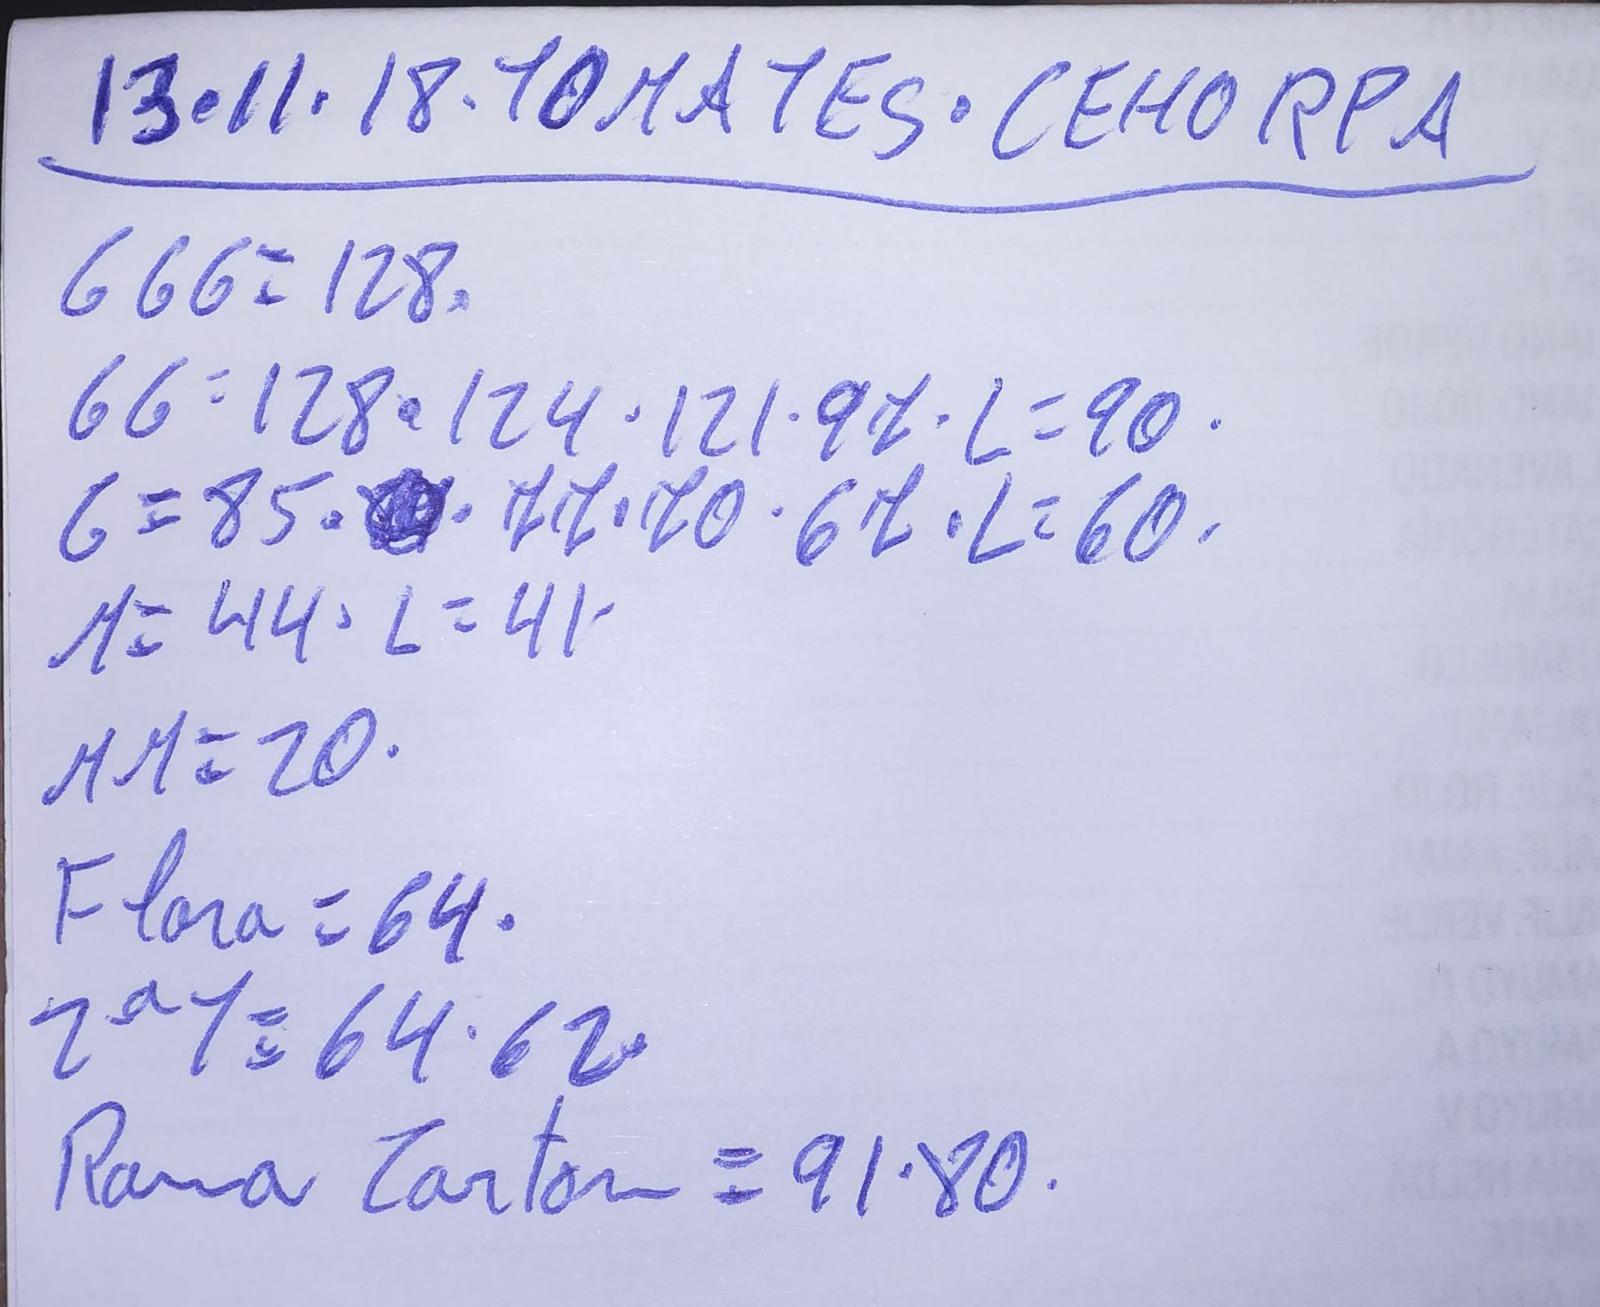 13.11.18.TOMATES.CEHORPA
GGG=128.
GG=128.124.121.97.L=90.
G=85.77.70.67.L=60.
M=44.L=41.
MM=20.
Flora=64.
2ªT=64.62.
Rama Carton=91.80.